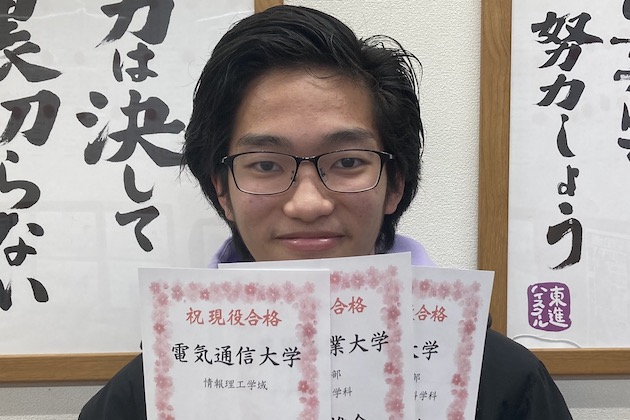 力は決して
裏切らない
努力しよう
東進
ハイスクール
祝 現役合格
電気通信大学
情報理工学域
合格
業大学
部
学科
大学
学科